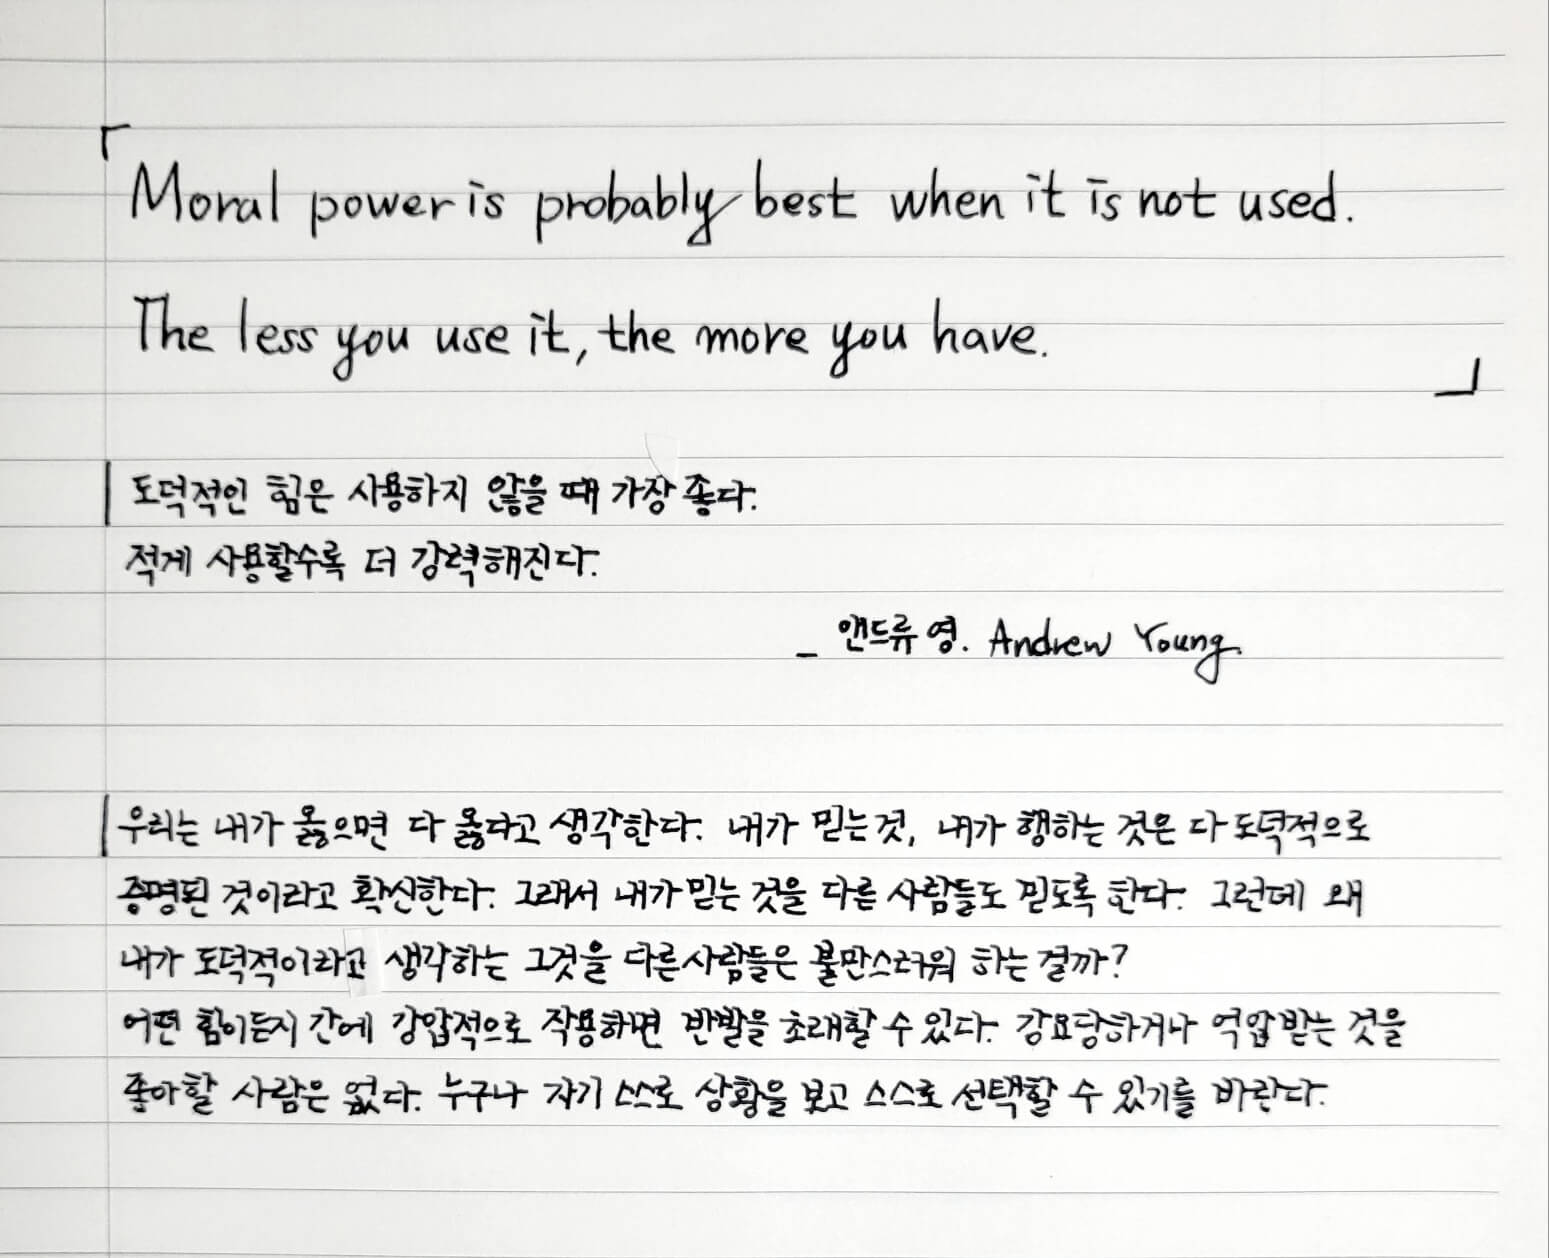 「Moral power is probably best when it is not used.
The less you use it, the more you have.」
도덕적인 힘은 사용하지 않을 때 가장 좋다.
적게 사용할수록 더 강력해진다.
_ 앤드류 영. Andrew Young.
우리는 내가 옳으면 다 옳다고 생각한다. 내가 믿는 것, 내가 행하는 것은 다 도덕적으로
증명된 것이라고 확신한다. 그래서 내가 믿는 것을 다른 사람들도 믿도록 한다. 그런데 왜
내가 도덕적이라고 생각하는 그것을 다른 사람들은 불만스러워 하는 걸까?
어떤 힘이든지 간에 강압적으로 작용하면 반발을 초래할 수 있다. 강요당하거나 억압받는 것을
좋아할 사람은 없다. 누구나 자기 스스로 상황을 보고 스스로 선택할 수 있기를 바란다.